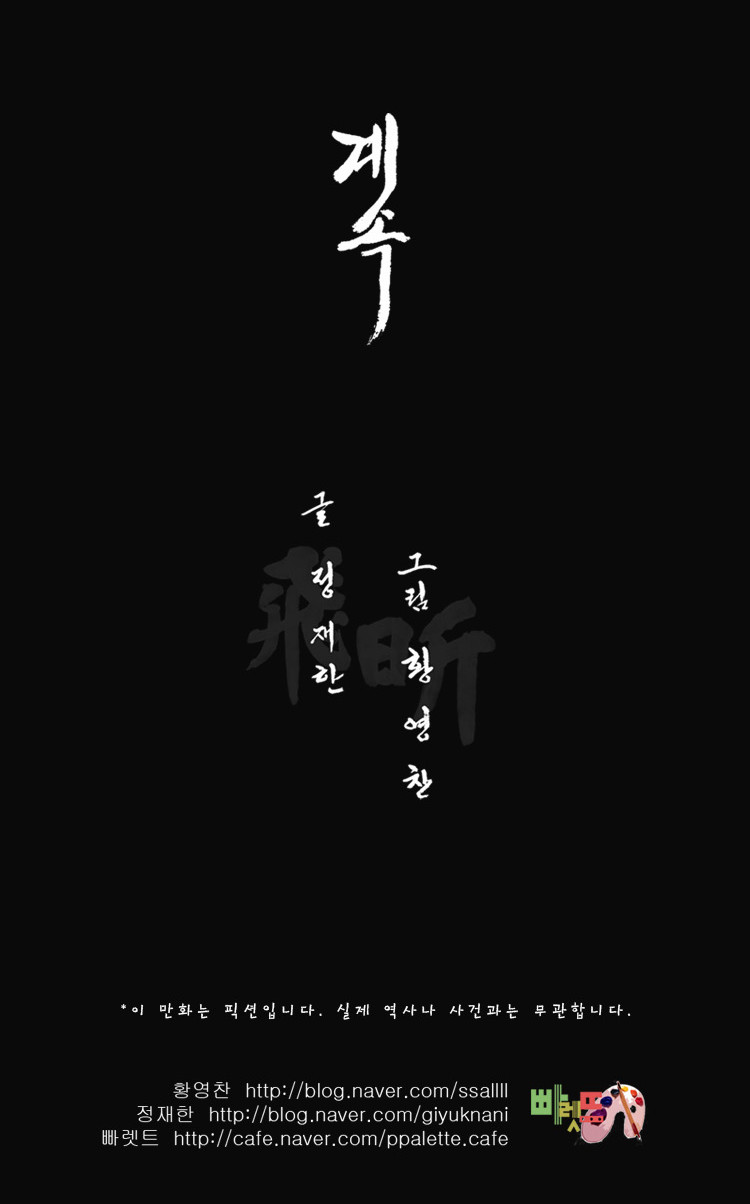 계속
글 정재한
그림 황영찬
飛昕
*이 만화는 픽션입니다. 실제 역사나 사건과는 무관합니다.
황영찬 http://blog.naver.com/ssallll
정재한 http://blog.naver.com/giyuknani
빠렛트 http://cafe.naver.com/ppalette.cafe
빠렛뜨